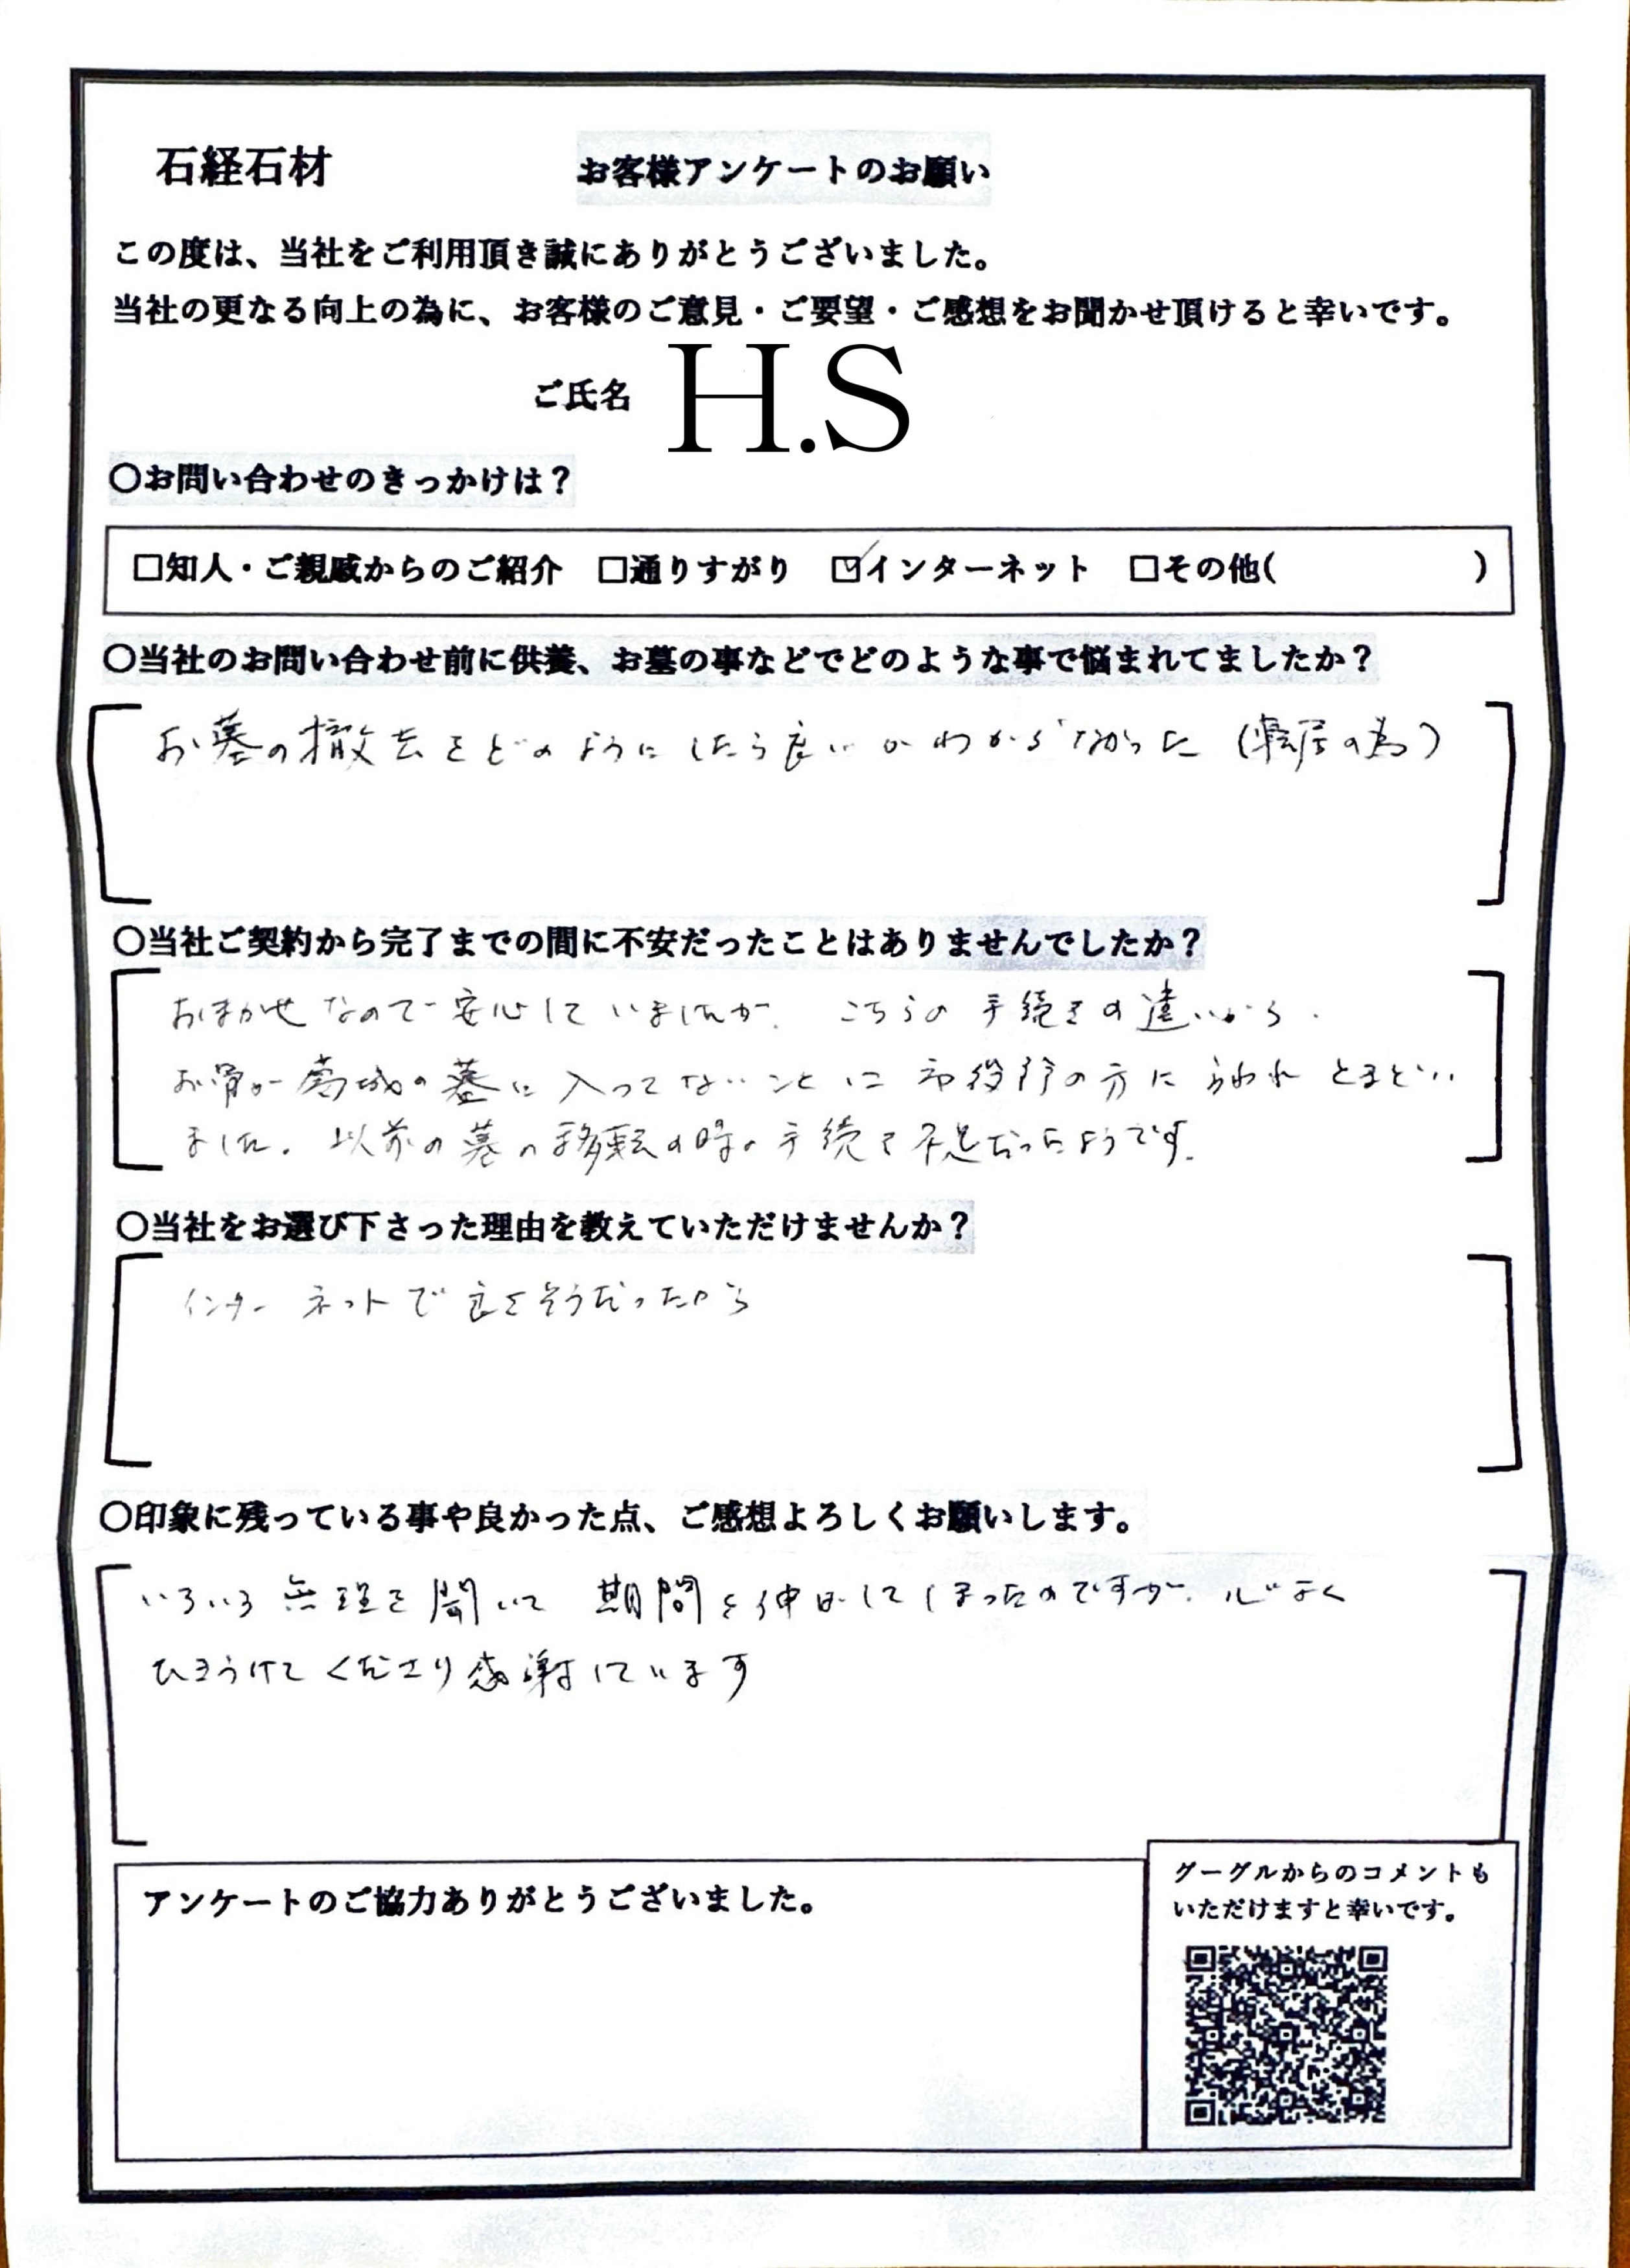 石経石材
お客様アンケートのお願い
この度は、当社をご利用頂き誠にありがとうございました。
当社の更なる向上の為に、お客様のご意見・ご要望・ご感想をお聞かせ頂けると幸いです。
ご氏名 H.S
〇お問い合わせのきっかけは？
□知人・ご親戚からのご紹介 □通りすがり ☑インターネット □その他( )
〇当社のお問い合わせ前に供養、お墓の事などでどのような事で悩まれてましたか？
お墓の撤去をどのようにしたら良いかわからなかった（転居の為）
〇当社ご契約から完了までの間に不安だったことはありませんでしたか？
おまかせなので安心していましたが、こちらの手続きの違いから、
お骨が葛城の墓に入ってないことに市役所の方に言われとまどい
ました。以前の墓の移転の時の手続き不足だったようです。
〇当社をお選び下さった理由を教えていただけませんか？
インターネットで良さそうだったから
〇印象に残っている事や良かった点、ご感想よろしくお願いします。
いろいろ無理を聞いて期間を伸ばしてしまったのですが、心よく
ひきうけてくださり感謝しています
アンケートのご協力ありがとうございました。
グーグルからのコメントも
いただけますと幸いです。